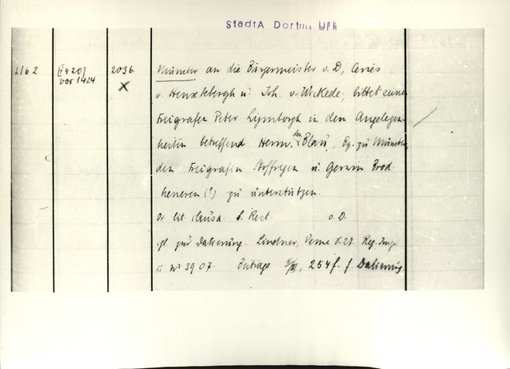 StadtA Dortm. UFN
2162 [1420] vor 1424 2036. X Münster an die Bürgermeister v. D., Cenies
v. Henxtebergh u. Joh. v. Wickede, bittet
Freigrafen Peter Lymborgh in den Angelegen-
heiten betreffend Herm. den Blau, Bg. zu Münster
den Freigrafen Stoffregen u. Gerwin Brod
heneren (?) zu unterstützen.
Or. lit. clausa. S. Rest o. D.
gl. zur Datierung. Lindner, Veme S. 27. Reg. Imp.
nr 3907. Beiträge 254 f. f. Datierung